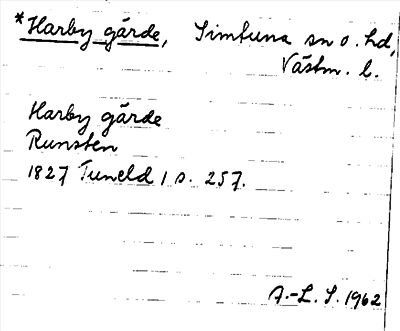 *Harby gärde, Simtuna sn o. hd,
Västm. l.
Harby gärde
Runsten
1827 Tuneld 1 s. 257.
A.-L. S. 1962